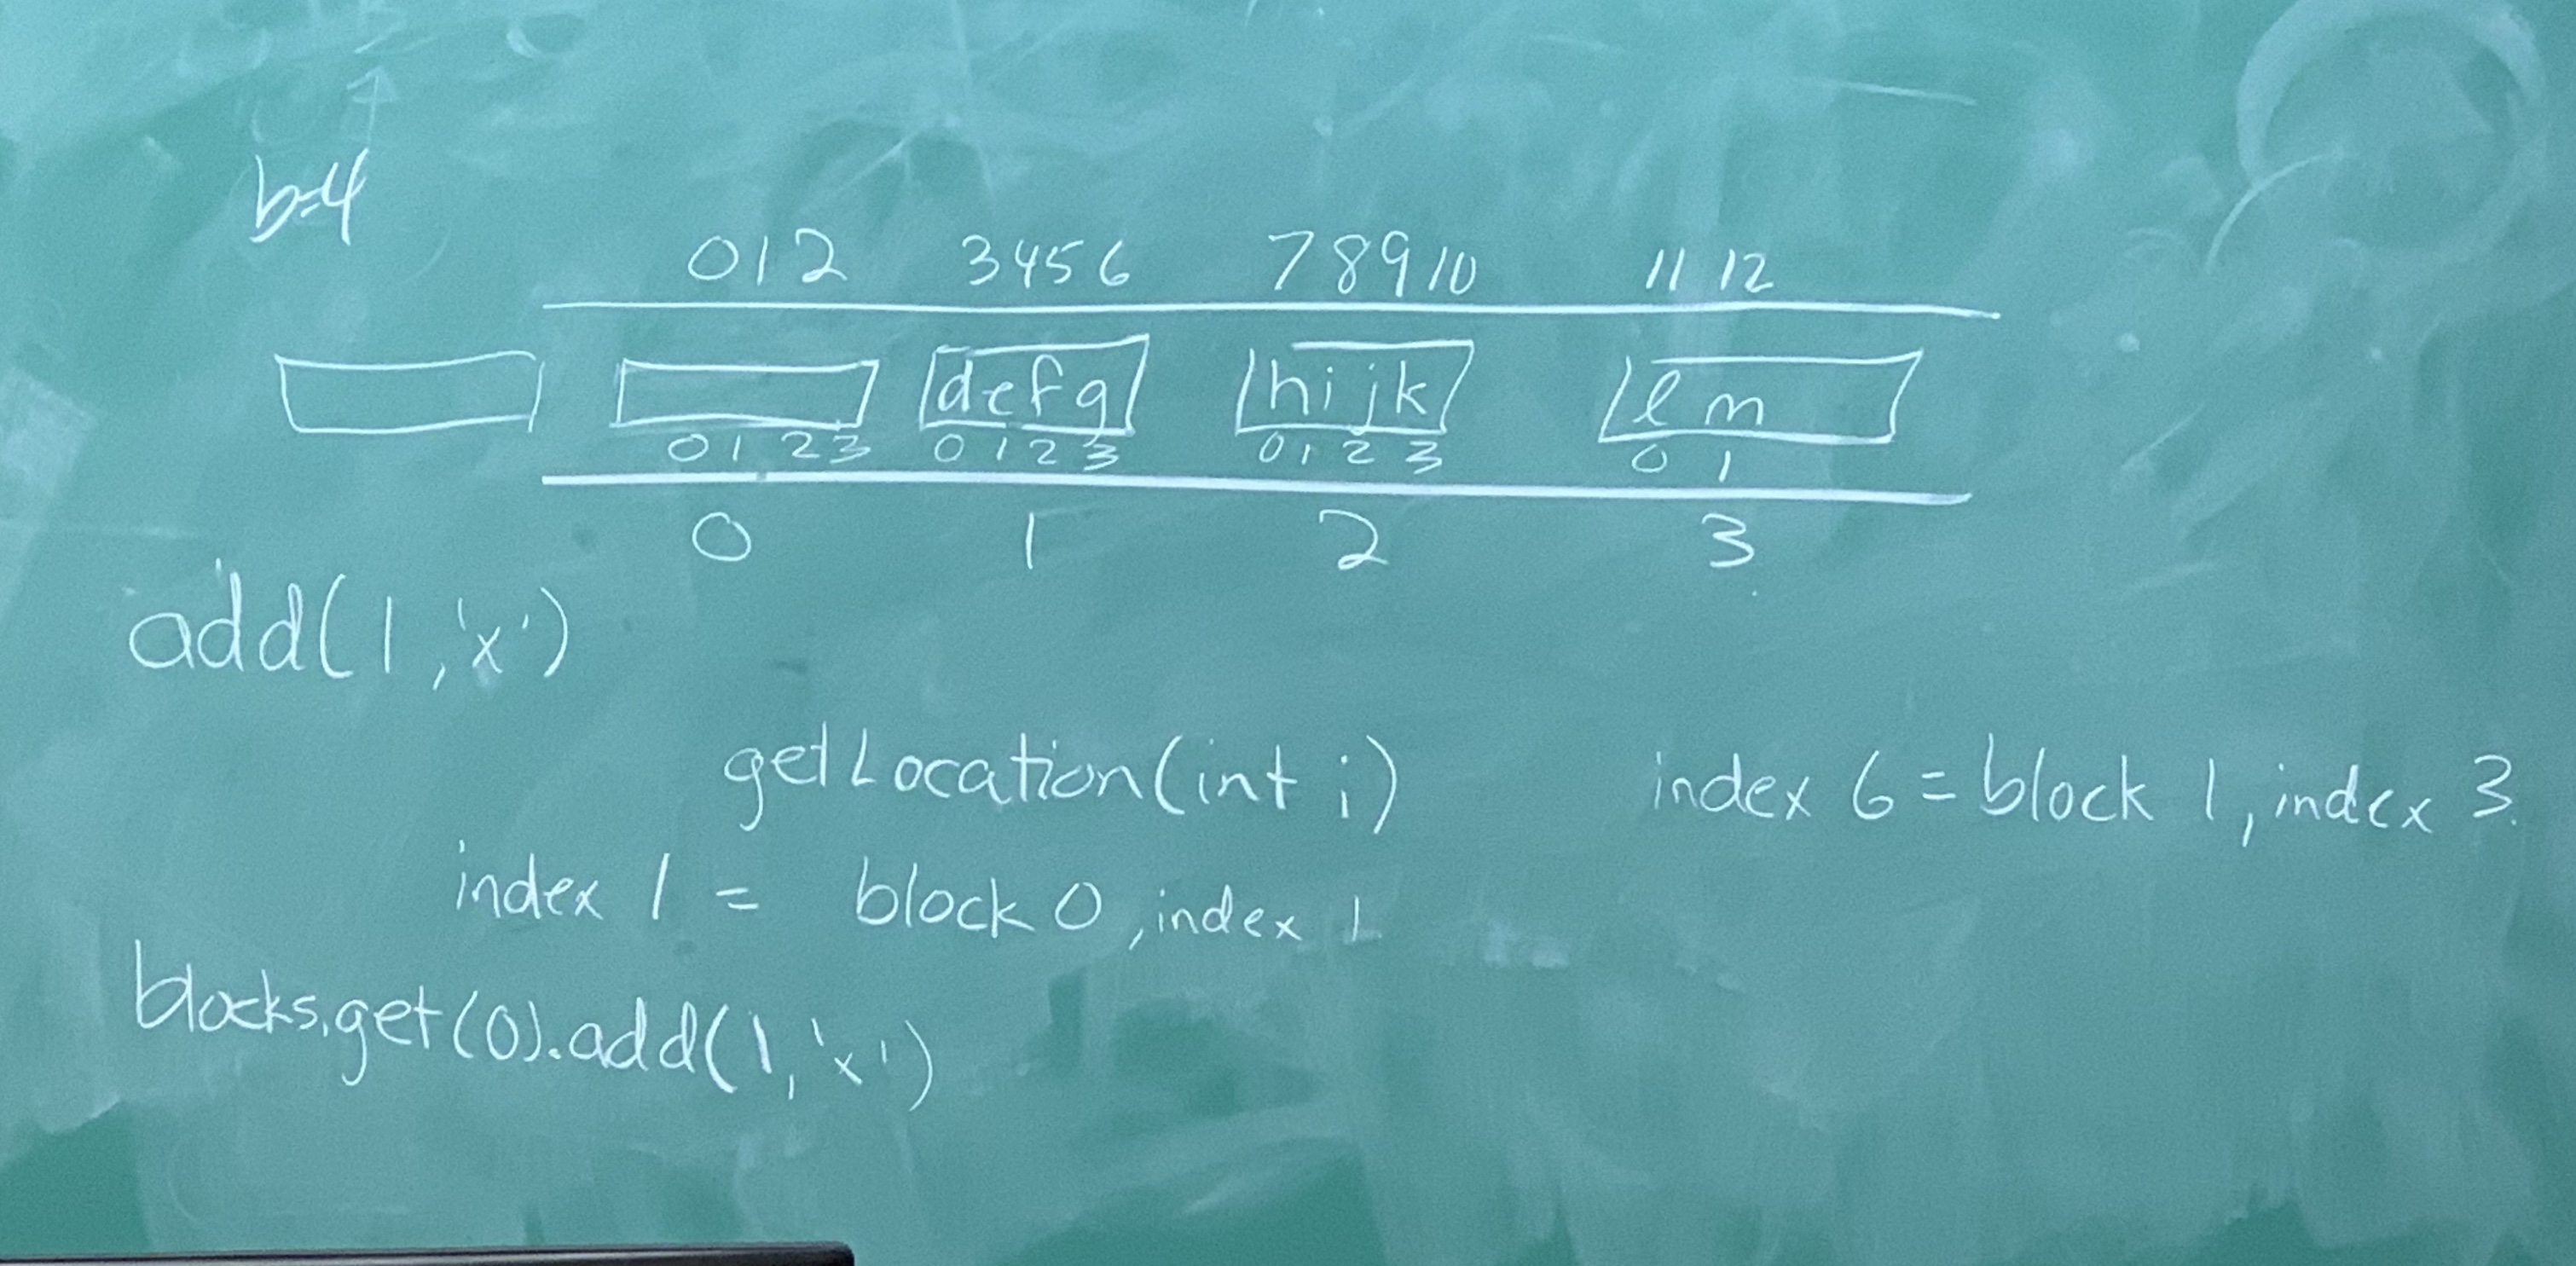 b=4
012 3456 78910 11 12
defg hijk lm
0123 0123 0123 01
0 1 2 3
add(1,'x')
getLocation(int i) index 6 = block 1, index 3.
index 1 = block 0, index 1
blocks.get(0).add(1,'x')